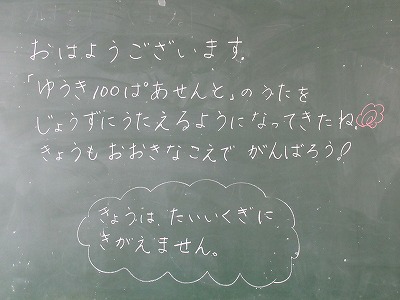 おはようございます。
「ゆうき100ぱあせんと」のうたを
じょうずにうたえるようになってきたね。
きょうもおおきなこえで がんばろう!
きょうは、たいいくぎに
きがえません。